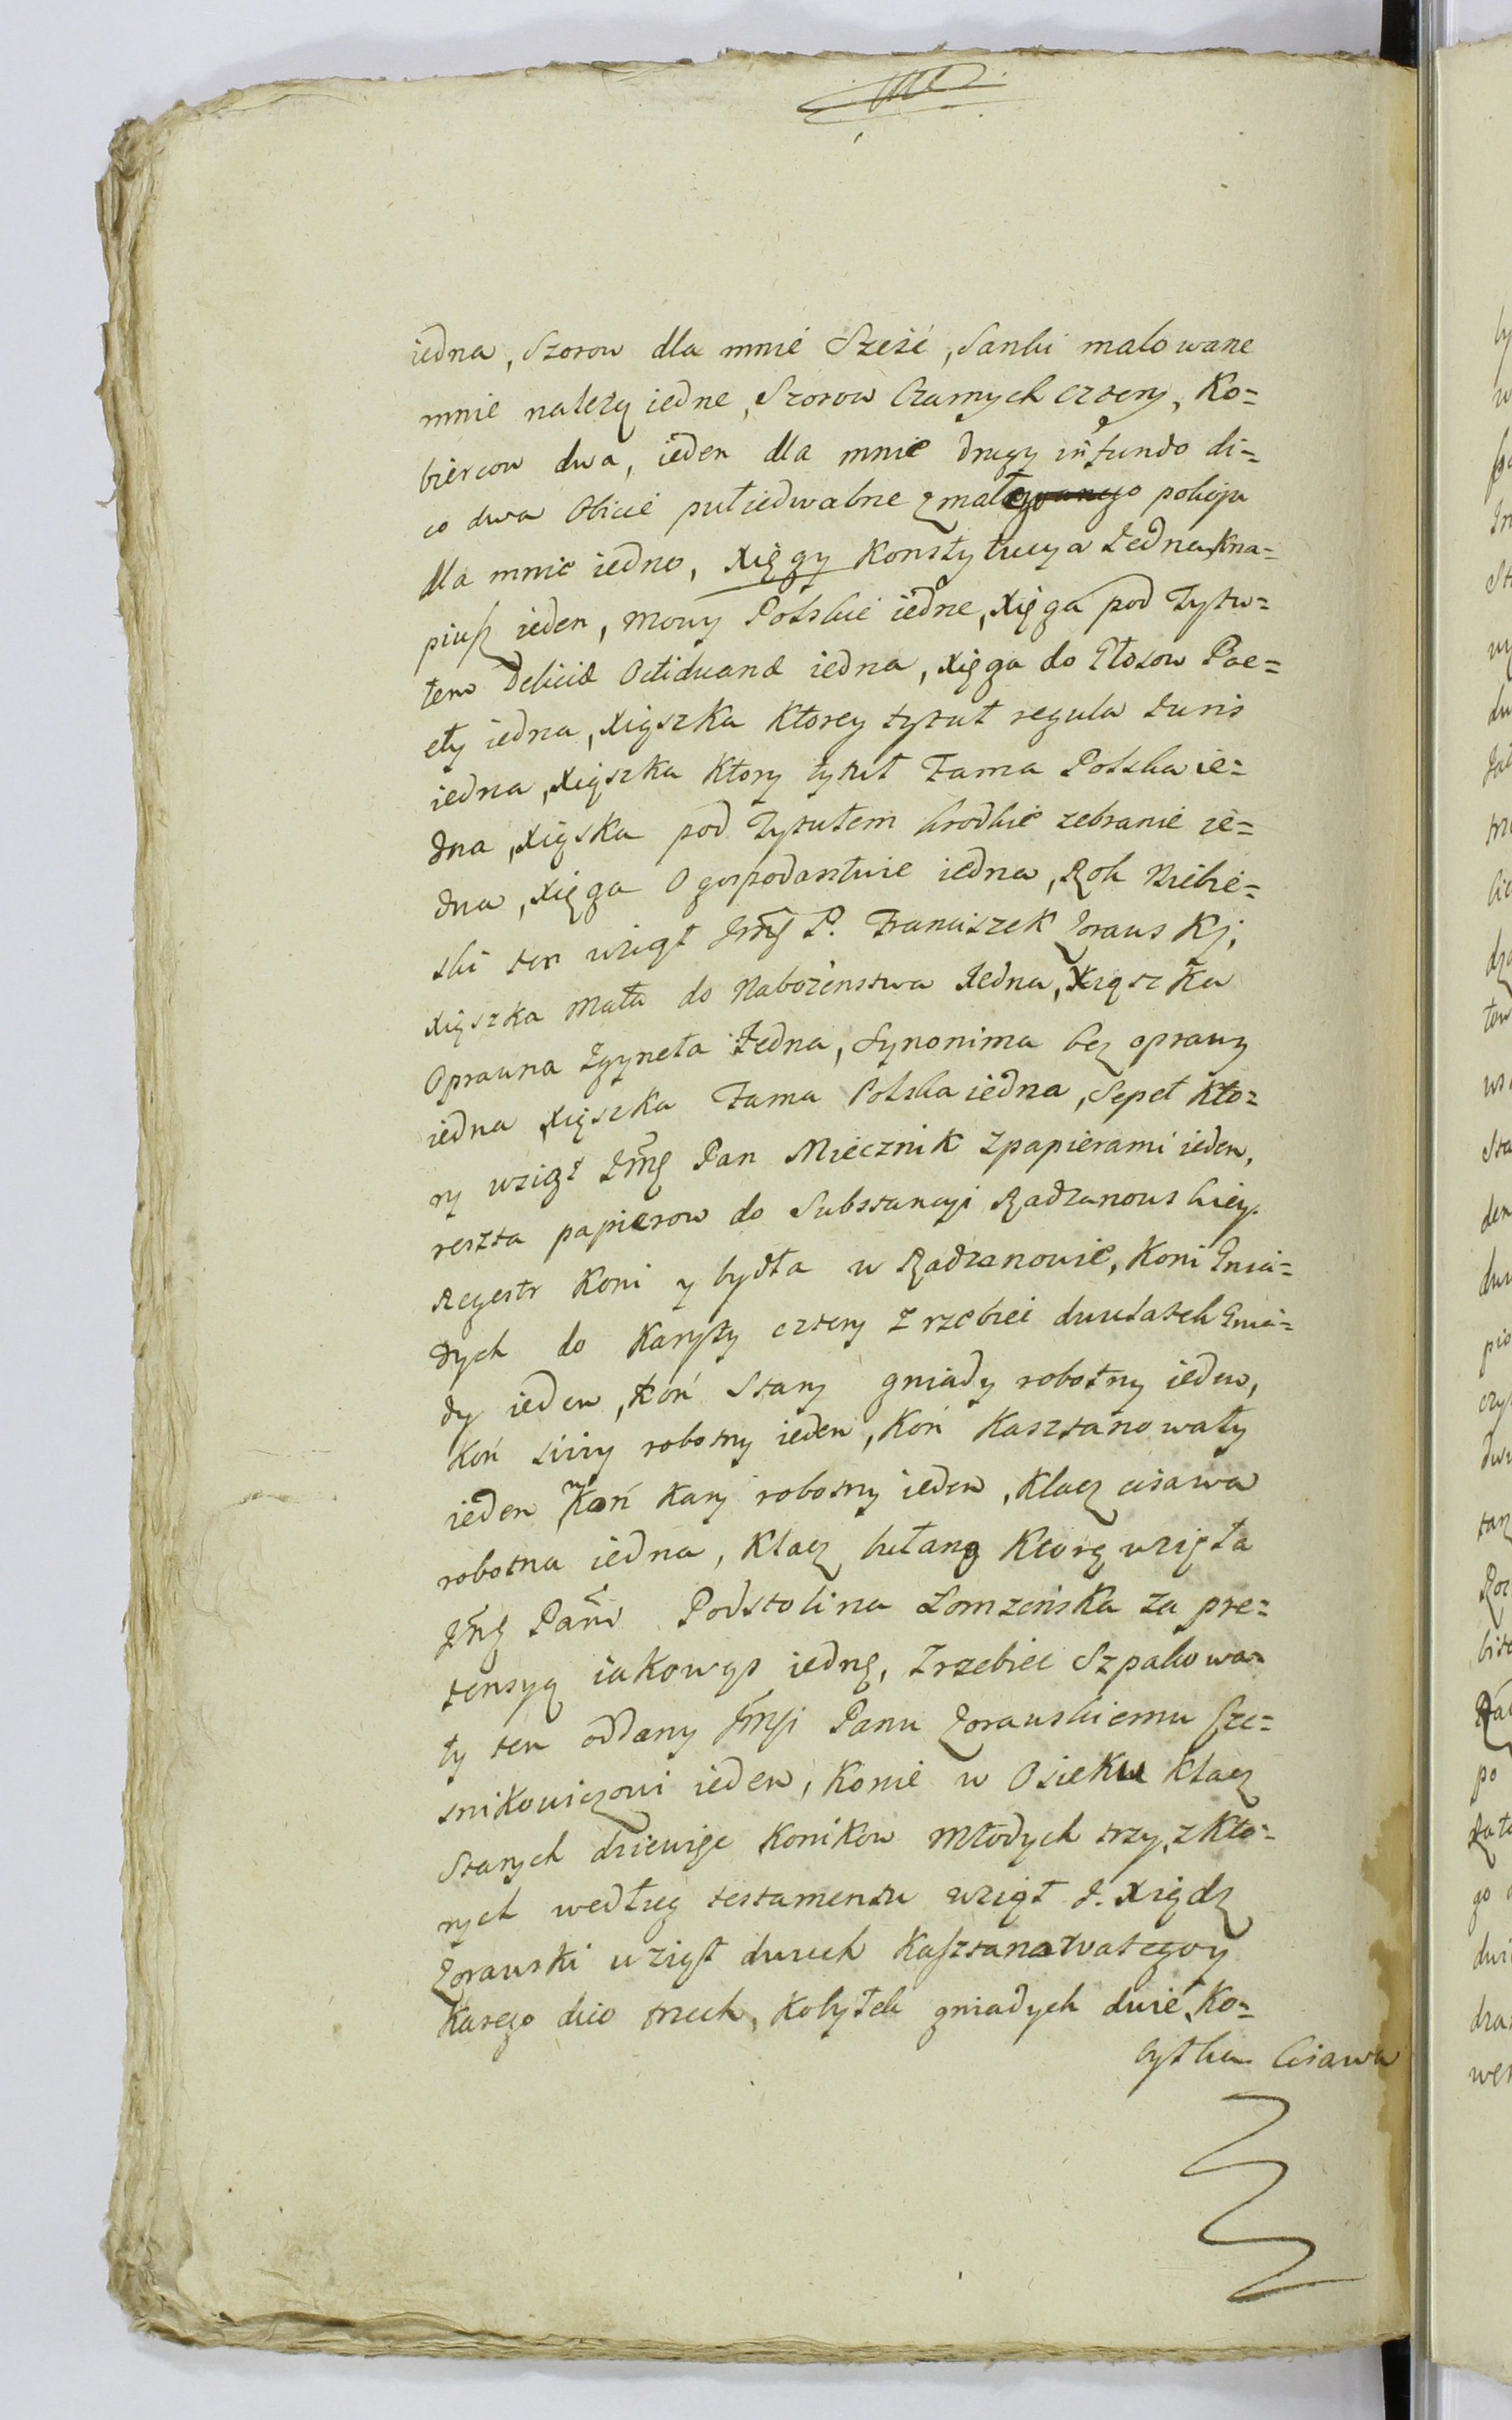 iedna, Szorow dla mnie Sześć, Sanki malowane
mnie należą iedne, Szorow Czarnych cztery, Ko=
biercow dwa, ieden dla mnie drugy in fundo di=
co dwa Obicie pułiedwabne z małego pokoju
dla mnie iedno, Xięgy Konstytucya Jedna, Kna=
piusz ieden, Mowy Polskie iedne, Xięga pod Tytu=
łem Deliciæ Octiduanæ iedna, xięga do Głosow Poe=
ty iedna, xiąszka Ktorey tytuł regula Juris
iedna, Xiąszka Ktory tytuł Fama Polska ie=
dna, Xiąska pod Tytułem krodkie zebranie ie=
dna, Xięga O gospodarstwie iedna, Rok Niebie=
ski ten wziął Jmę P. Franciszek Zorawskj,
xiąszka Mała do Nabożenstwa Jedna, Xiąszka
Oprawna Zgyneła Jedna, Synonima bez oprawy
iedna Xiąszka Fama Polska iedna, Sepet Kto=
ry wziął Jmę Pan Miecznik z papierami ieden,
reszta papierow do Substancyi Radzanowskiey.
Regestr Koni y bydła w Radzanowie, Koni Gnia=
dych do Karyty cztery Zrzebiec dwulatek Gnia=
dy ieden, Koń Stary gniady robotny ieden,
Koń siwy robotny ieden, Koń Kasztanowaty
ieden Koń Kary robotny ieden, Klacz cisawa
robotna iedna, Klacz bułaną Ktorę wzięła
Jmę Pani Podstolina Łomzeńska za pre=
tensyą iakowąs iednę, Zrzebiec Szpakowa=
ty ten oddany Jmsi Panu Zorawskiemu Cze=
snikowiczowi ieden, Konie w Osieku Klacz
Starych dziewięc Konikow Młodych trzy, z Kto=
rych według testamentu wziął J. Xiądz
Zorawski wziął dwuch Kasztanowatego y
Karego dico trzech, Kobyłek gniadych dwie, Ko=
byłka Cisawa